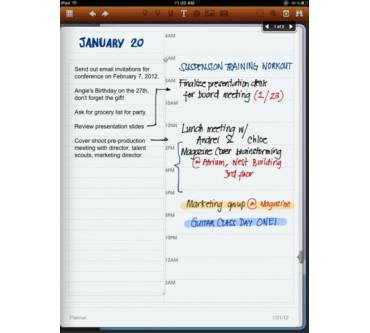 iPad
11:20 AM
1 of 2
JANUARY 20
Send out email invitations for
conference on February 7, 2012.
Angie's Birthday on the 27th,
don't forget the gift!
Ask for grocery list for party.
Review presentation slides
Cover shoot pre-production
meeting with director, talent
scouts, marketing director
6AM
SUSPENSION TRAINING WORKOUT
8AM
Finalize presentation
for board meeting (1/23)
10AM
12PM
Lunch meeting w/
Andrei & Chloe
Magazine cover brainstorming
@ Atrium, West Building
3rd floor
6PM
Marketing group @ Magazine
GUITAR CLASS DAY ONE!
10PM
12AM
2AM
Planner